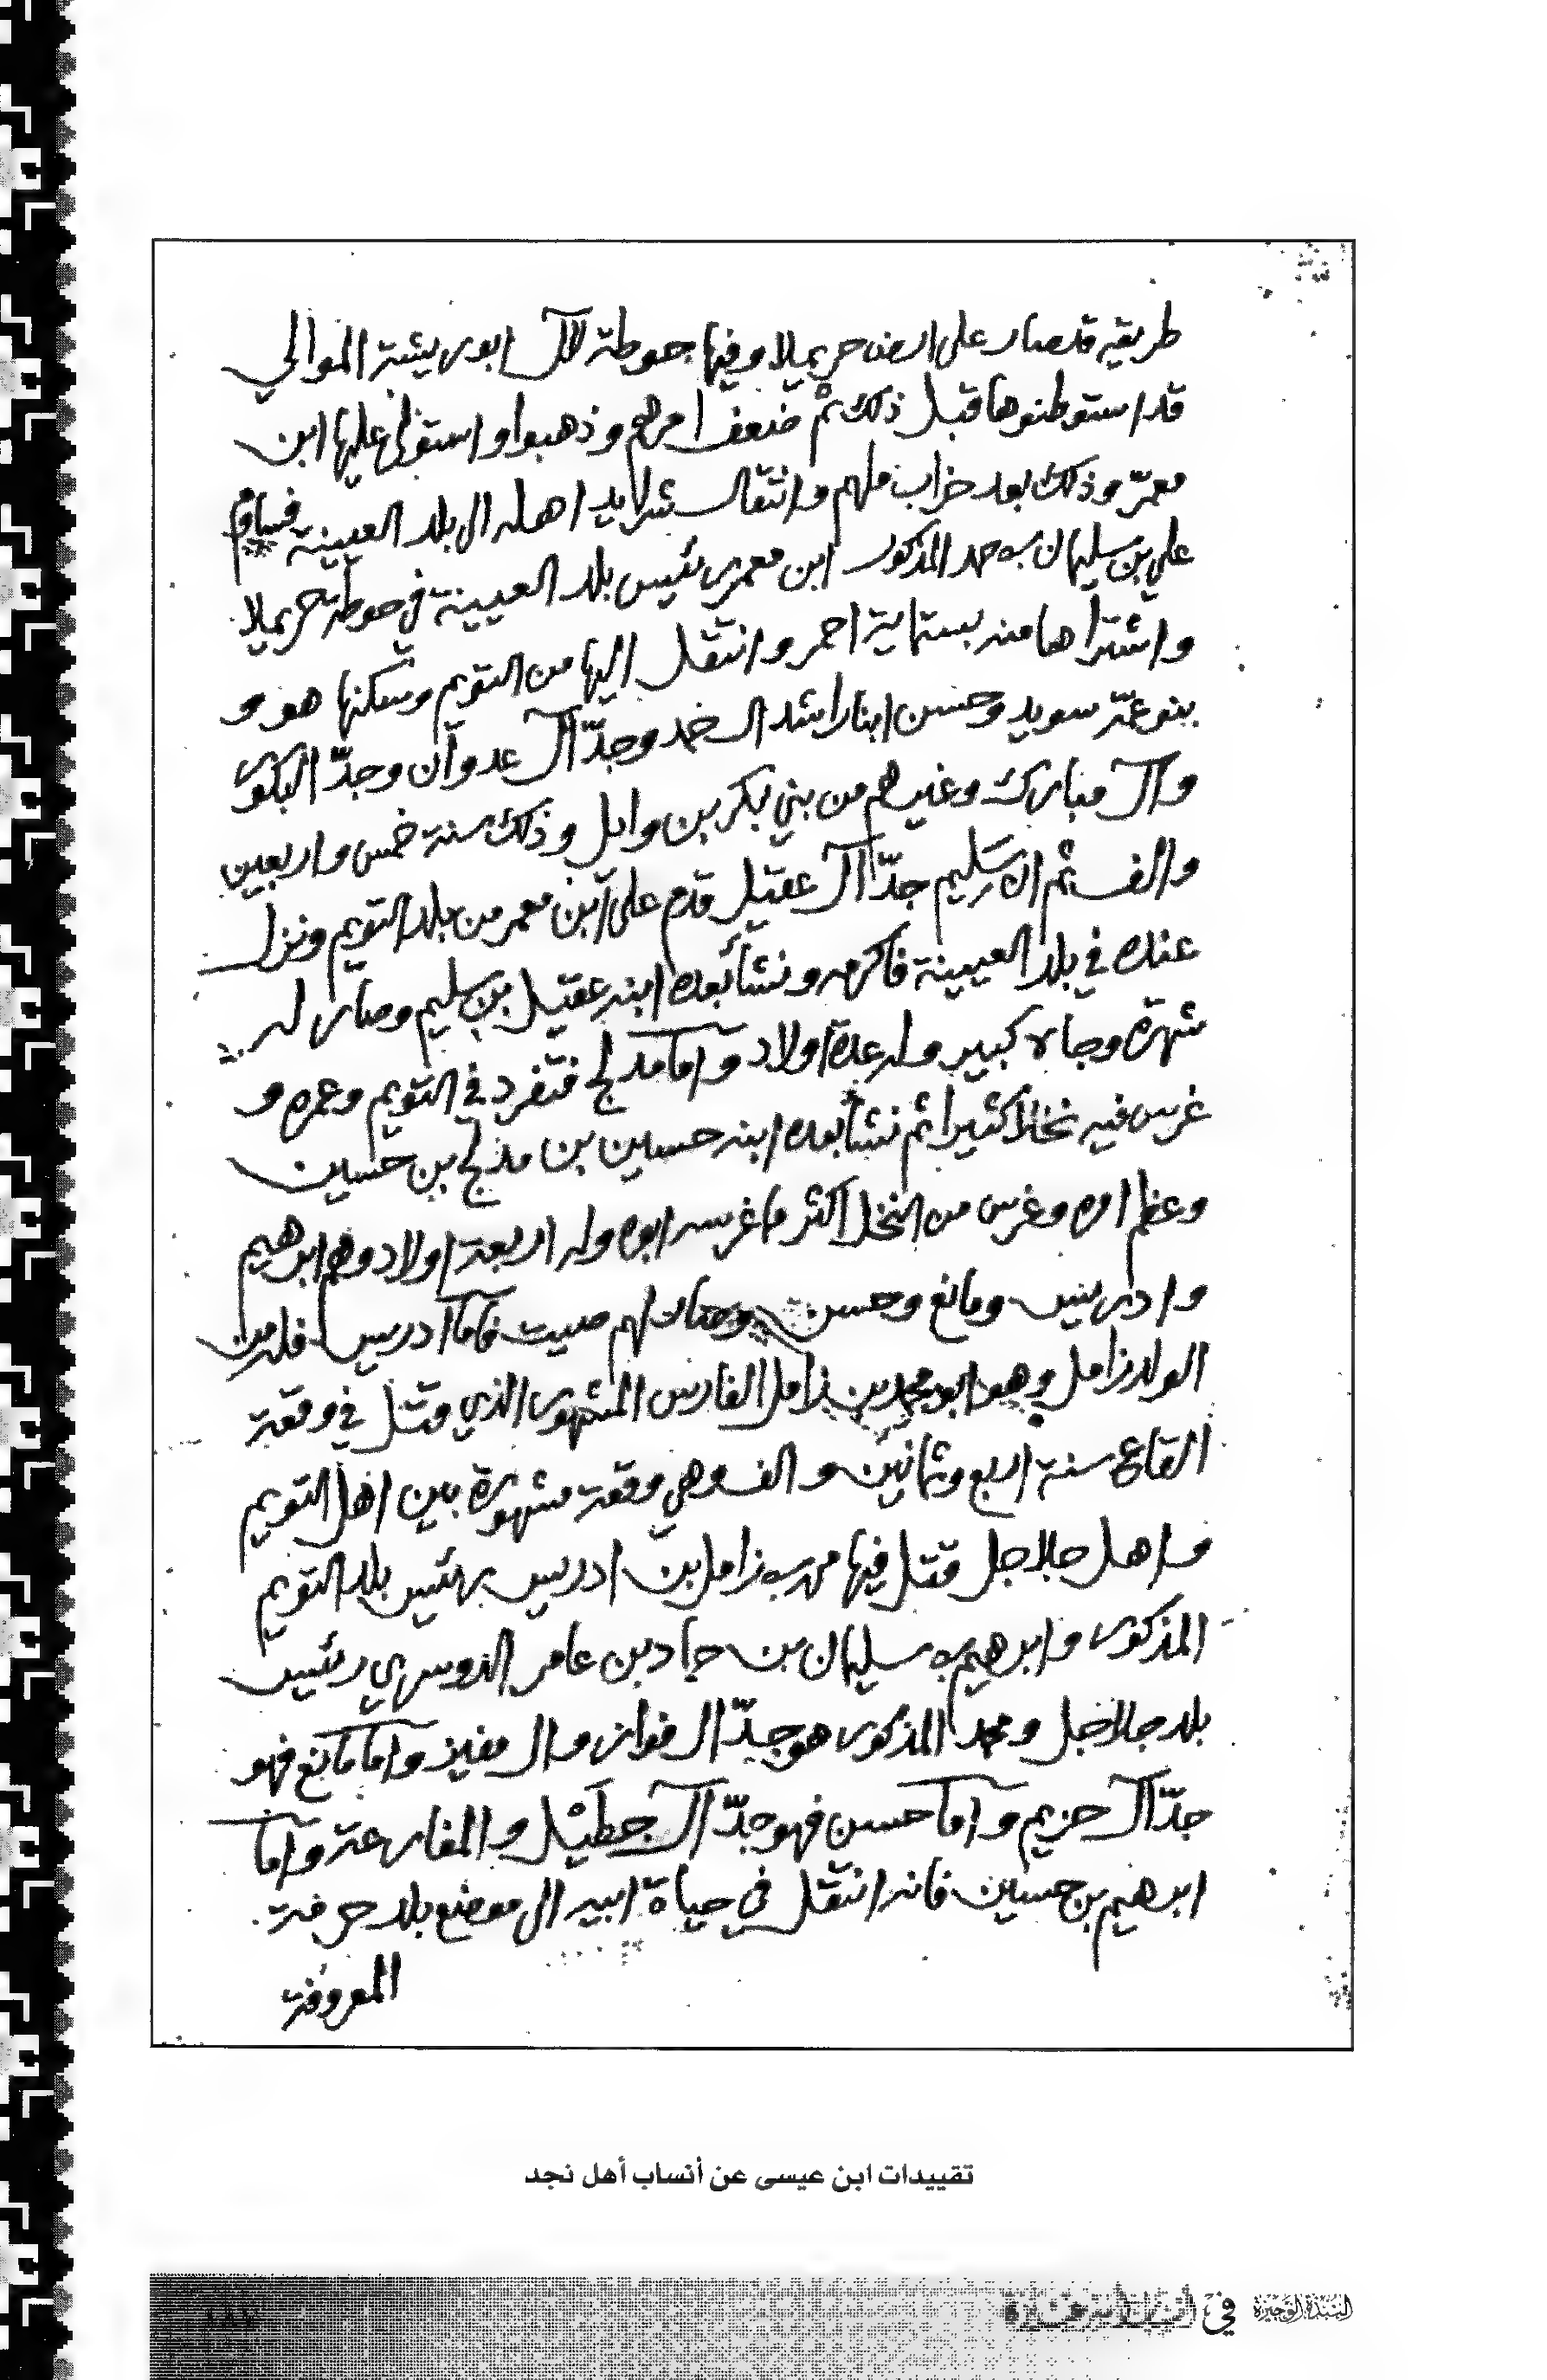 طريقه قد صار على ارض حريملا وفيها حوطة لآل ابوريشة الموالي
قد استوطنوها قبل ذلك ثم ضعف امرهم وذهبوا واستولى عليها ابن
معمّر وذلك بعد خراب ملهم وانتقال شرايد اهله الى بلد العيينة فساوم
علي بن سليمان بن حمد المذكور ابن معمر رئيس بلد العيينة في حوطة حريملا
واشتراها منه بستماية احمر وانتقل اليها من التويم وسكنها هو و
بنو عمّه سويد وحسن ابنا راشد ال حمد وجدّ آل عدوان وجدّ البكور
وآل مبارك وغيرهم من بني بكر بن وايل وذلك سنة خمس واربعين
والف ثم ان سليم جدّ آل عقيل قدم على ابن معمر من بلد التويم ونزل
عنده في بلد العيينة فاكرمه ونشأ بعده ابنه عقيل بن سليم وصار له
شهرة وجاه كبير وله عدة اولاد وأما مدلج فتفرد في التويم وعمره و
غرس فيه نخلا كثيرا ثم نشأ بعده ابنه حسين بن مدلج بن حسين
وعظم امره وغرس من النخل اكثر ما غرسه ابوه وله اربعة اولاد وهم ابرهيم
وادريس ومانع وحسن وصار لهم صيت فأما ادريس فله من
الولد زامل وهو ابو محمد بن زامل الفارس المشهور الذي قتل في وقعة
القاع سنة اربع وثمانين والف وهي وقعة مشهورة بين اهل التويم
واهل جلاجل قتل فيها محمد بن زامل بن ادريس رئيس بلد التويم
المذكور وابرهيم بن سليمان بن حماد بن عامر الدوسري رئيس
بلد جلاجل ومحمد المذكور هو جدّ ال فواز وال مفيز وأما مانع فهو
جدّ آل حزيم وأما حسن فهو جدّ آل جطيل والمفارعة وأما
ابرهيم بن حسين فانه انتقل في حياة ابيه الى موضع بلد حرمة
المعروفة
تقييدات ابن عيسى عن أنساب أهل نجد
النبذة الوجيزة في أنساب أسر